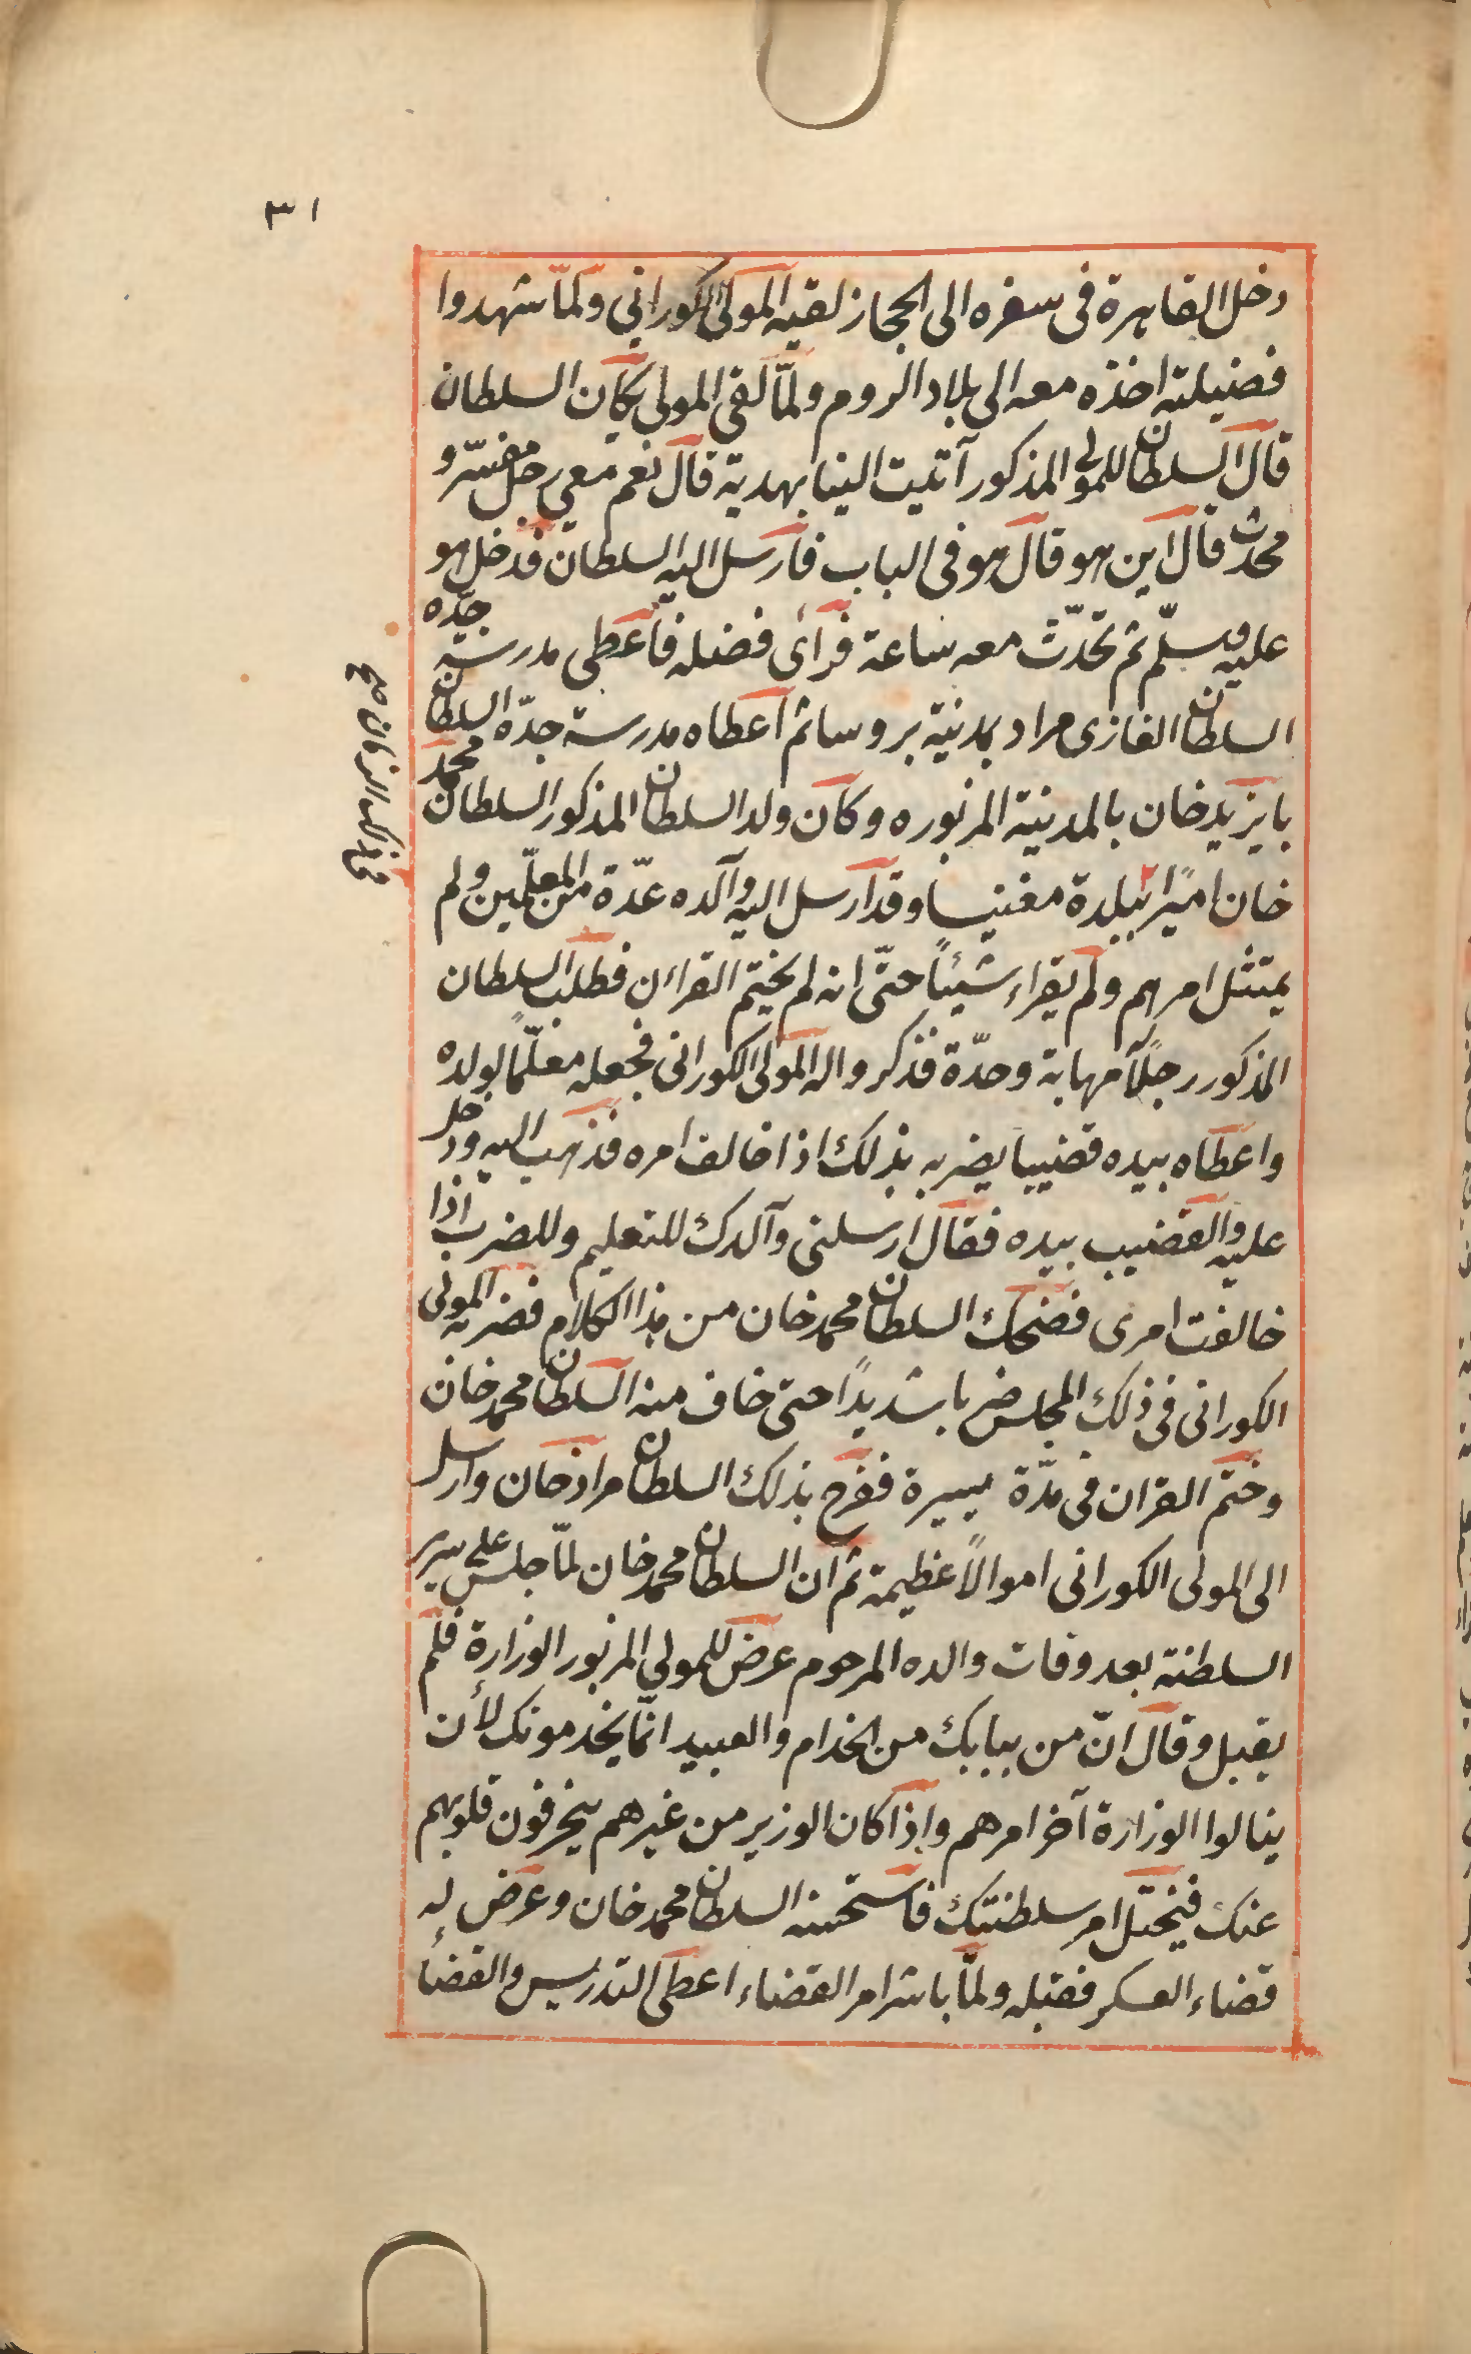 ٣١
دخل القاهرة فى سفره الى الحجاز لقيه المولى الكوراني ولمّا شهدوا
فضيلته اخذه معه الى بلاد الروم ولمّا لقى المولى يكان السلطان
قال السلطان للمولى المذكور آتيت الينا بهدية قال نعم معى رجل مفسّر و
محدث قال اين هو قال هو فى الباب فارسل اليه السلطان فدخل هو
عليه وسلّم ثم تحدّث معه ساعة فرأى فضله فاعطى مدرسة جدّه
السلطان الغازى مراد بمدنية بروسا ثم اعطاه مدرسة جدّه السلطان
بايزيد خان بالمدينة المزبوره وكان ولد السلطان المذكور السلطان محمد
خان اميرًا ببلدة مغنيسا وقد ارسل اليه والده عدّة من المعلّمين ولم
يمتثل امرهم ولم يقراء شيئاً حتّى انه لم يختم القراءن فطلب السلطان
المذكور رجلاً مهابة وحدّة فذكروا له المولى الكورانى فجعله معلّمًا لولده
واعطاه بيده قضيبا يضربه بذلك اذا خالف امره فذهب اليه ودخل
عليه والقضيب بيده فقال ارسلنى والدك للتعليم وللضرب اذا
خالفت امرى فضحك السلطان محمد خان من هذا الكلام فضربه المولى
الكورانى فى ذلك المجلس ضربا شديداً حتى خاف منه السلطان محمد خان
وختم القران فى مدّة يسيرة ففرح بذلك السلطان مراد خان وارسل
الى المولى الكورانى اموالاً عظيمة ثم ان السلطان محمد خان لمّا جلس على سرير
السلطنة بعد وفات والده المرحوم عرض للمولى المزبور الوزارة فلم
يقبل وقال انّ من ببابك من الخدام والعبيد انّما يخدمونك لأن
ينالوا الوزارة آخر امرهم واذا كان الوزير من غيرهم ينحرفون قلوبهم
عنك فيختل امر سلطنتك فاستحسنه السلطان محمد خان وعرض له
قضاء العسكر فقبله ولمّا باشر امر القضاء اعطى التدريس والقضاء